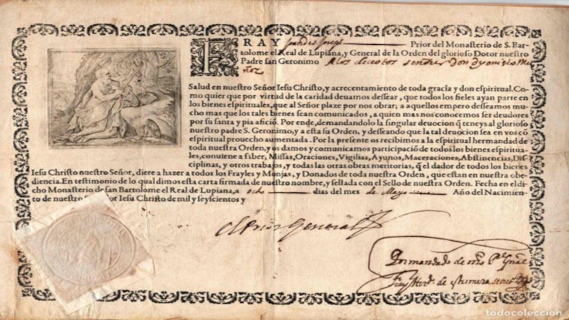 FRAY Prior del Monasterio de S. Bar-
tolome el Real de Lupiana, y General de la Orden del glorioso Dotor nuestro
Padre san Geronimo A los deuotos señores Don
Salud en nuestro Señor Iesu Christo, y acrecentamiento de toda gracia y don espiritual. Co-
mo quier que por virtud de la caridad deuamos dessear, que todos los fieles ayan parte
en los bienes espirituales, que al Señor plaze por nos obrar; a aquellos empero desseamos mu-
cho mas que los tales bienes sean comunicados, a quien mas nos conocemos ser deudores
por su santa y pia afició. Por ende, demandandolo la singular deuocion q̄ teneys al glorioso
nuestro padre S. Geronimo, y a esta su Orden, y desseando que la tal deuocion sea en vos cō
espiritual prouecho aumentada. Por la presente os recebimos a la espiritual hermandad de
toda nuestra Orden, y os damos y comunicamos participació de todos los bienes espiritua-
les, conuiene a saber, Missas, Oraciones, Vigilias, Ayunos, Maceraciones, Abstinencias, Dis-
ciplinas, y otros trabajos, y todas las otras obras meritorias, q̄ el dador de todos los bienes
Iesu Christo nuestro Señor, diere a hazer a todos los Frayles y Monjas, y Donados de toda nuestra Orden, que estan en nuestra obe-
diencia. En testimonio de lo qual dimos esta carta firmada de nuestro nombre, y sellada con el Sello de nuestra Orden. Fecha en el di-
cho Monasterio de san Bartolome el Real de Lupiana, a ocho dias del mes de Mayo Año del Nacimien-
to de nuestro Señor Iesu Christo de mil y seyscientos y
el Prior General
Por mandado de nro Pe Gnal
Fray
todocoleccion